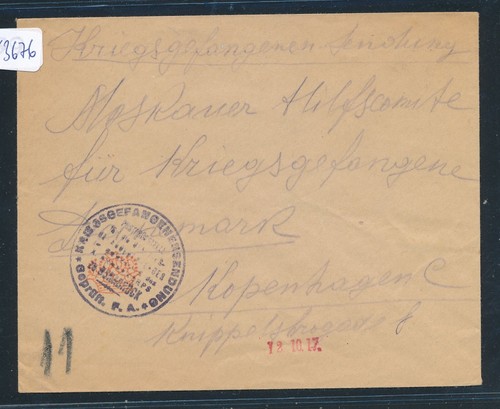 3676
Kriegsgefangenen Sendung
Moskauer Hilfscomite
für Kriegsgefangene
Dänemark
Kopenhagen C
Knippelsbrogade
KRIEGSGEFANGENENSENDUNG
Geprüft. F. A.
12.10.17.
11